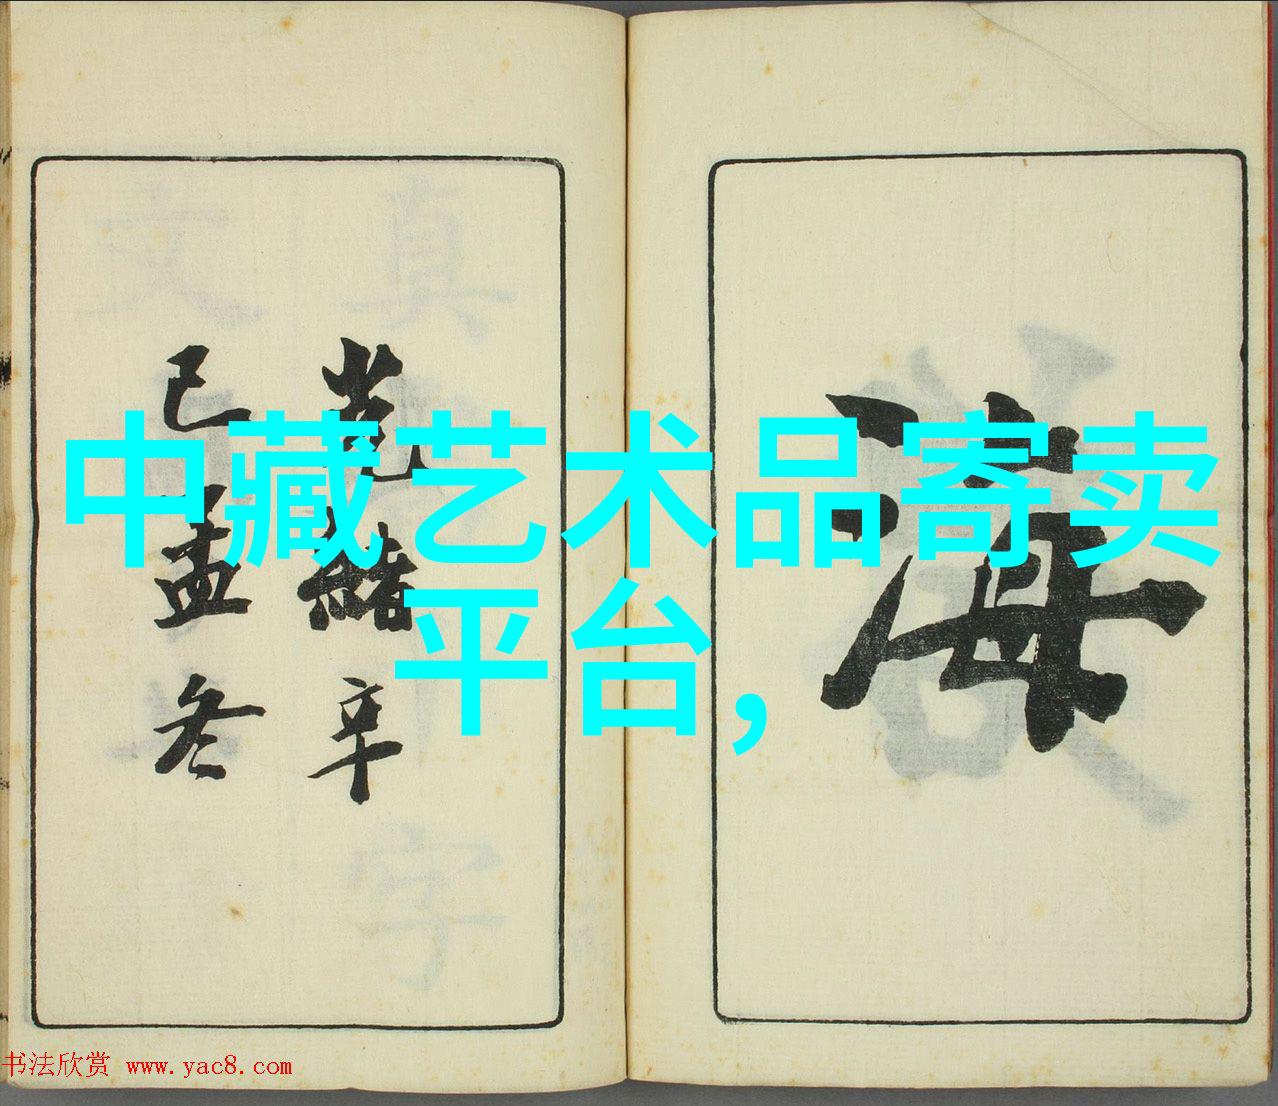 中藏艺术品寄卖
平台，
海
光緒辛
巳孟冬
书法欣赏 www.yac8.com